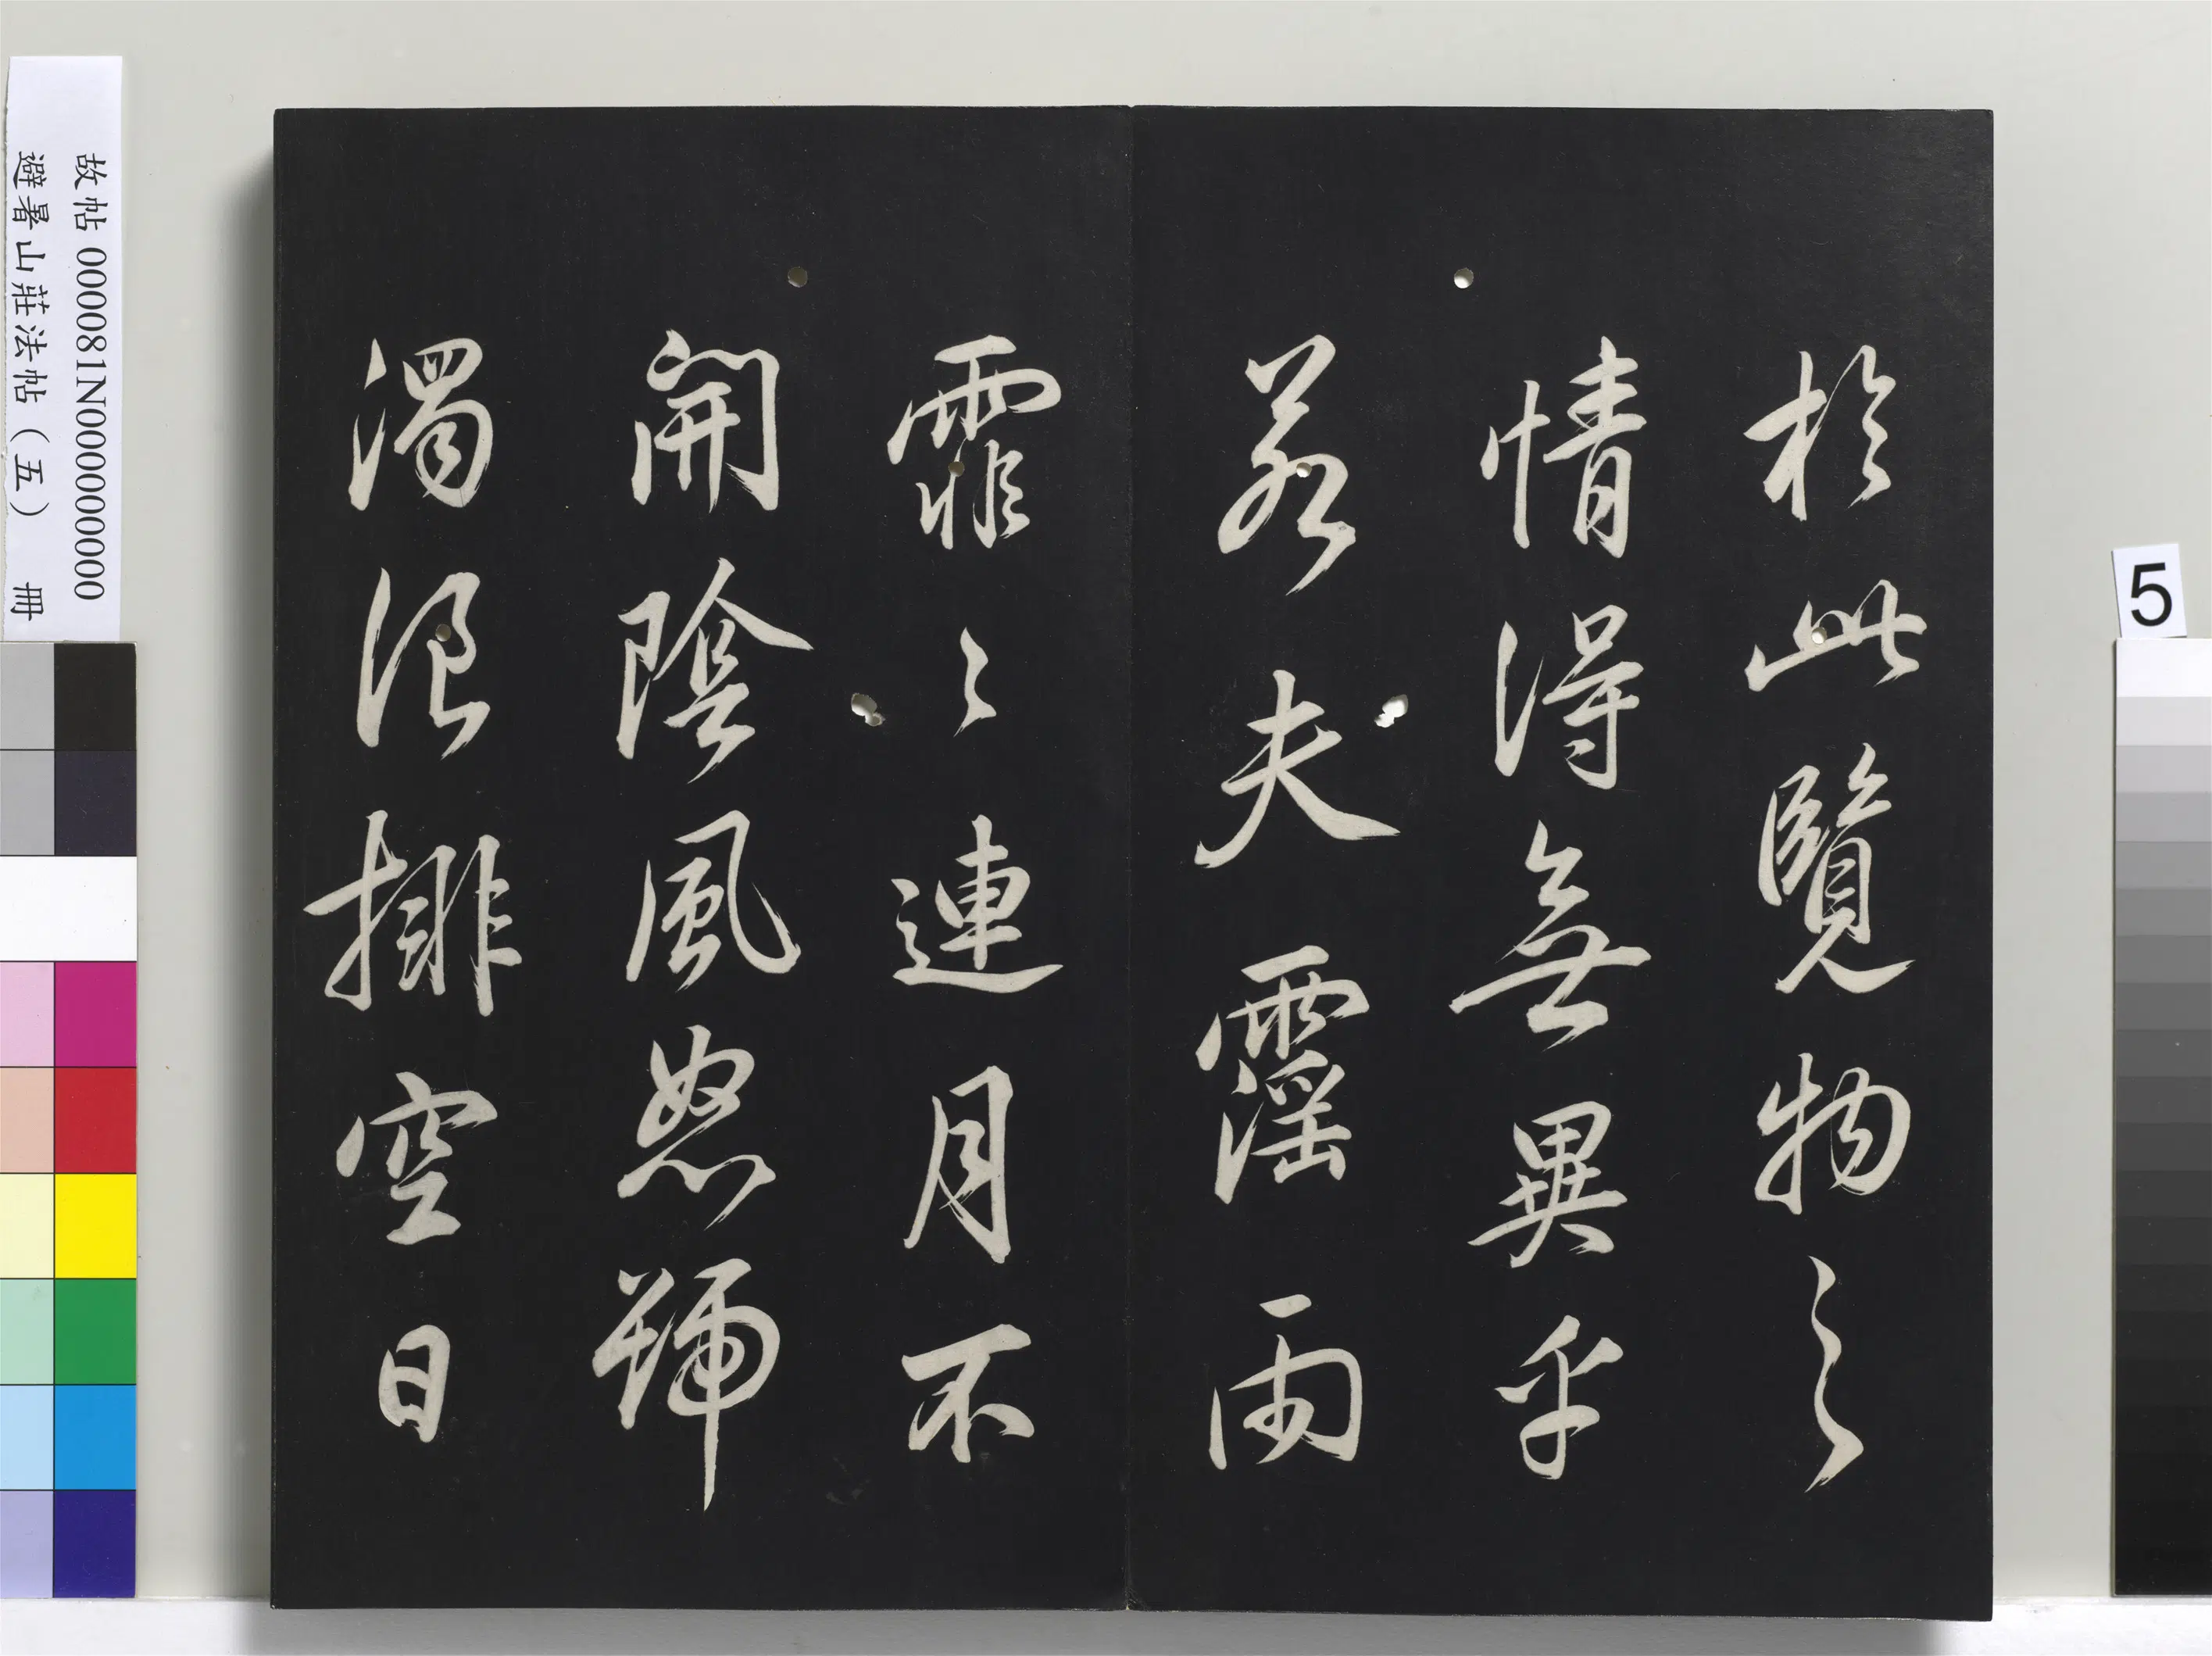 於此覽物之
情得無異乎
若夫霪雨
霏〻連月不
開陰風怒號
濁浪排空日
故帖 000081N000000000
避暑山莊法帖（五） 冊
5